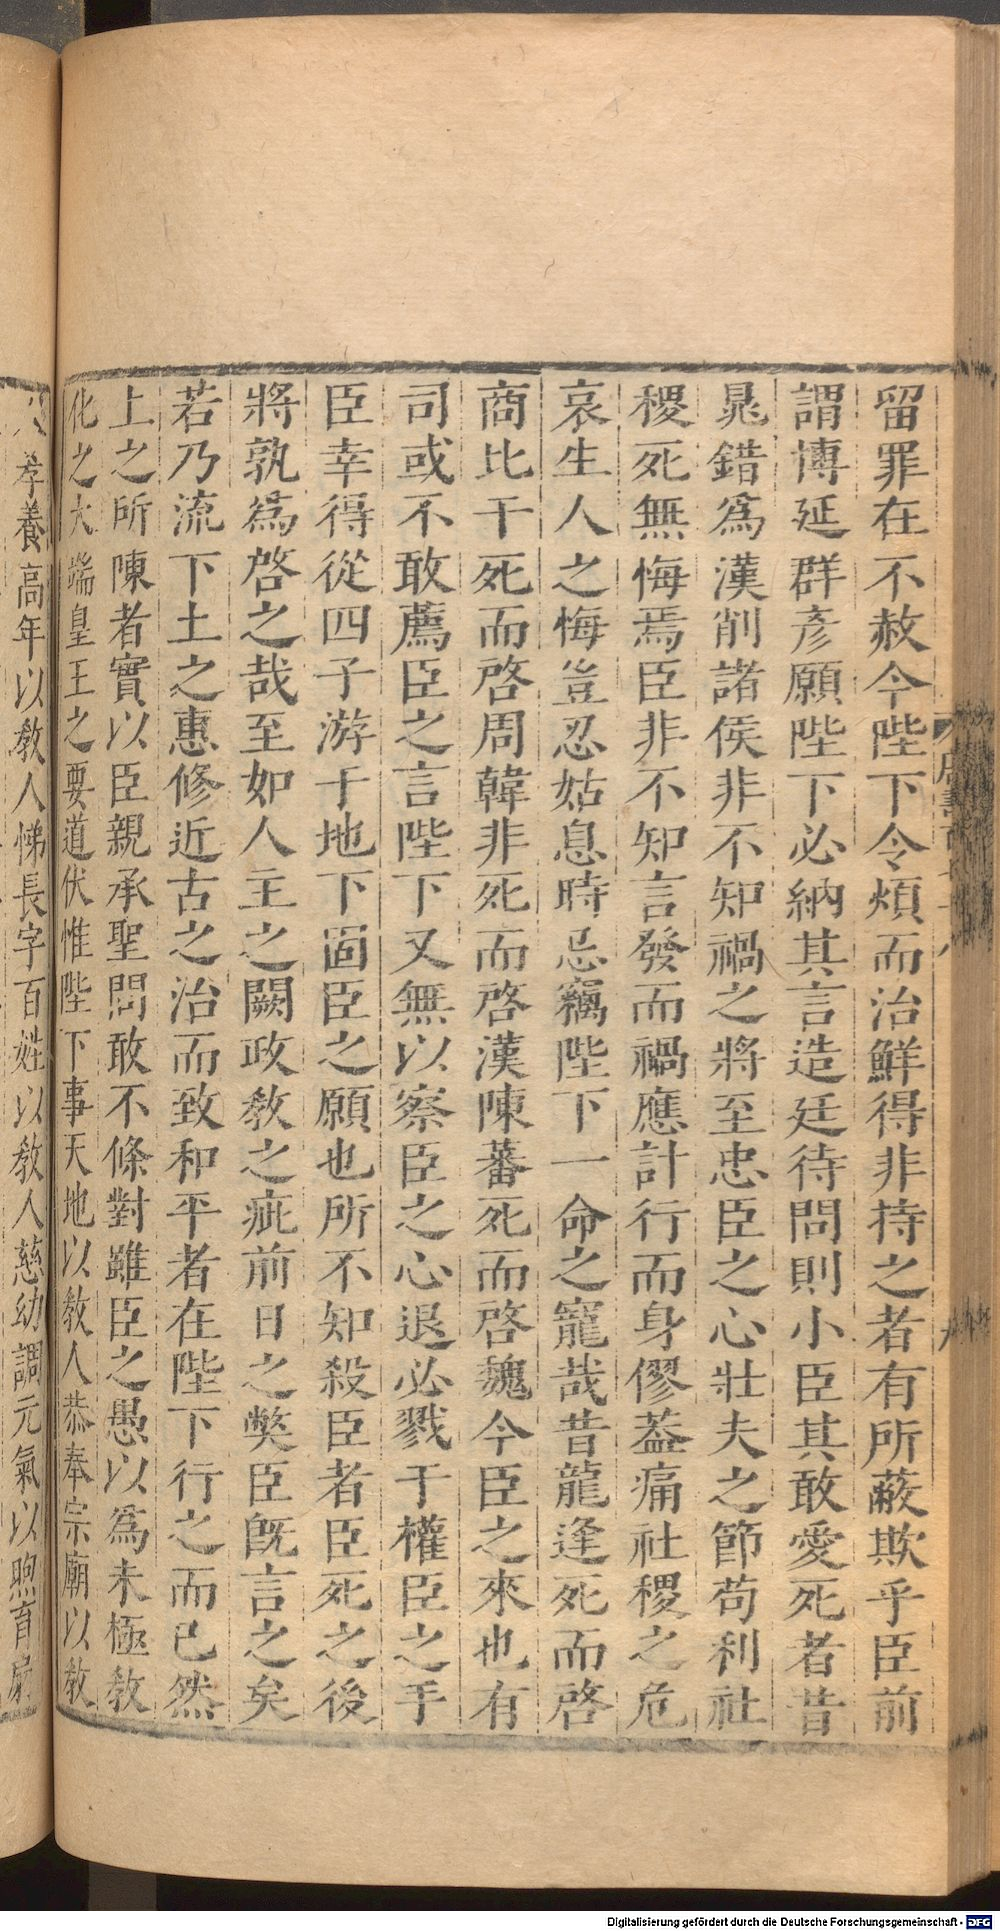 留罪在不赦今陛下令煩而治鮮得非持之者有所蔽欺乎臣前
謂博延群彥願陛下必納其言造廷待問則小臣其敢愛死者昔
晁錯爲漢削諸侯非不知禍之將至忠臣之心壯夫之節苟利社
稷死無悔焉臣非不知言發而禍應計行而身僇蓋痛社稷之危
哀生人之悔豈忍姑息時忌竊陛下一命之寵哉昔龍逢死而啓
商比干死而啓周韓非死而啓漢陳蕃死而啓魏今臣之來也有
司或不敢薦臣之言陛下又無以察臣之心退必戮于權臣之手
臣幸得從四子游于地下固臣之願也所不知殺臣者臣死之後
將孰爲啓之哉至如人主之闕政教之疵前日之獘臣旣言之矣
若乃流下土之惠修近古之治而致和平者在陛下行之而已然
上之所陳者實以臣親承聖問敢不條對雖臣之愚以爲未極教
化之大端皇王之要道伏惟陛下事天地以教人恭奉宗廟以教
孝養高年以教人悌長字百姓以教人慈幼調元氣以煦育扇
Digitalisierung gefördert durch die Deutsche Forschungsgemeinschaft - DFG